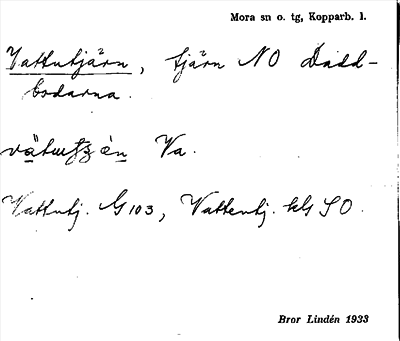 Mora sn o. tg, Kopparb. l.
Vattutjärn, tjärn NO Dadd-
bodarna.
Va.
Vattutj. G103, Vattentj. kls SO.
Bror Lindén 1933